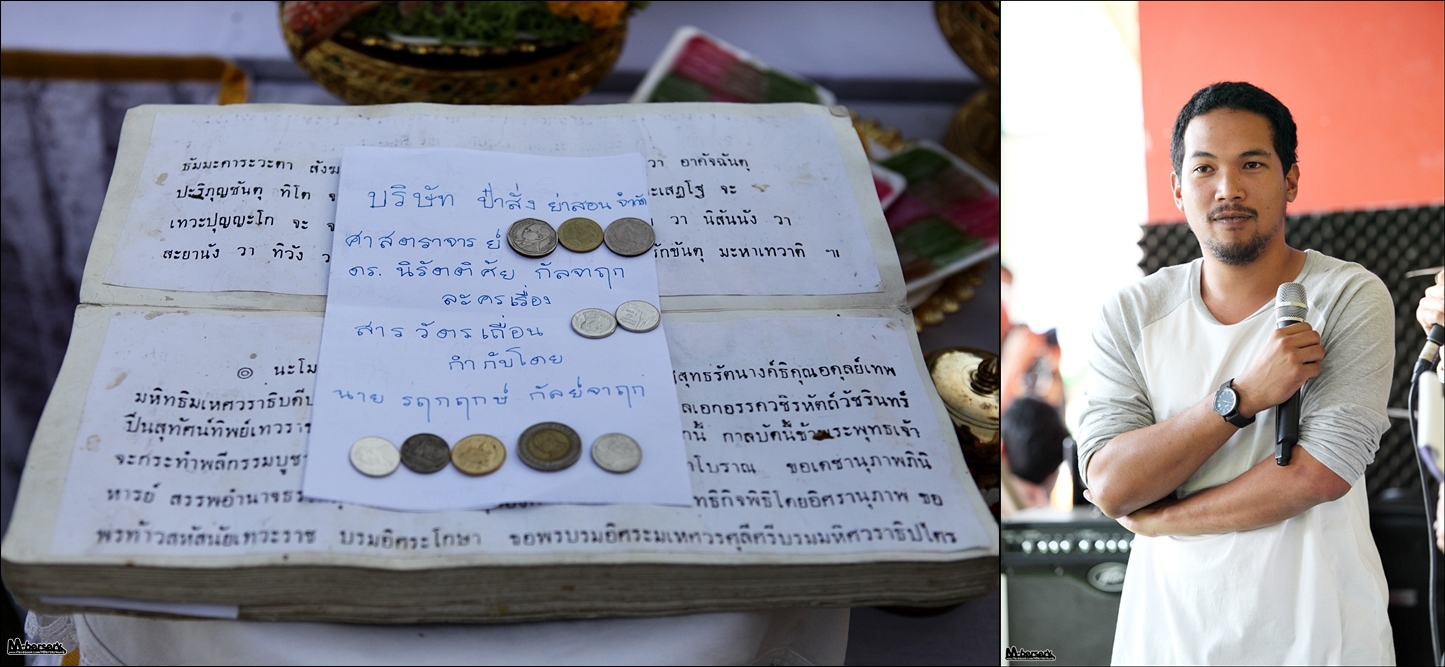 ธัมมะคาระวะตา สังฆ
วา อาคัจฉันตุ
ปะริภุญชันตุ ทิโต
ะเสฏโฐ จะ
เทวะปุญญะโก จะ
วา นิสันนัง วา
สะยานัง วา ทิวัง
รักขันตุ มะหาเทวาติ ฯ
บริษัท ป๋าสั่ง ย่าสอน จำกัด
ศาสตราจารย์
ดร. นิรัตติศัย กัลจาฤก
ละครเรื่อง
สารวัตรเถื่อน
กำกับโดย
นาย รฤกฤกษ์ กัลย์จาฤก
๏ นะโม
สุทธรัตนางค์ธิคุณอดุลย์เทพ
มหิทธิมเหศวราธิบดี
ลเอกอรรควชิรหัตถ์วัชรินทร์
ปิ่นสุทัศน์ทิพย์เทวรา
านี้ กาลบัดนี้ข้าพระพุทธเจ้า
จะกระทำพลีกรรมบูช
โบราณ ขอเดชานุภาพภินิ
หารย์ สรรพอำนาจ
ทธิกิจพิธีโดยอิศรานุภาพ ขอ
พรท้าวสหัสนัยเทวะราช บรมอิศระโกษา ขอพรบรมอิศระมเหศวรศุลีศรีบรมมหิศวราธิปไตร
M-berserk
M-berserk